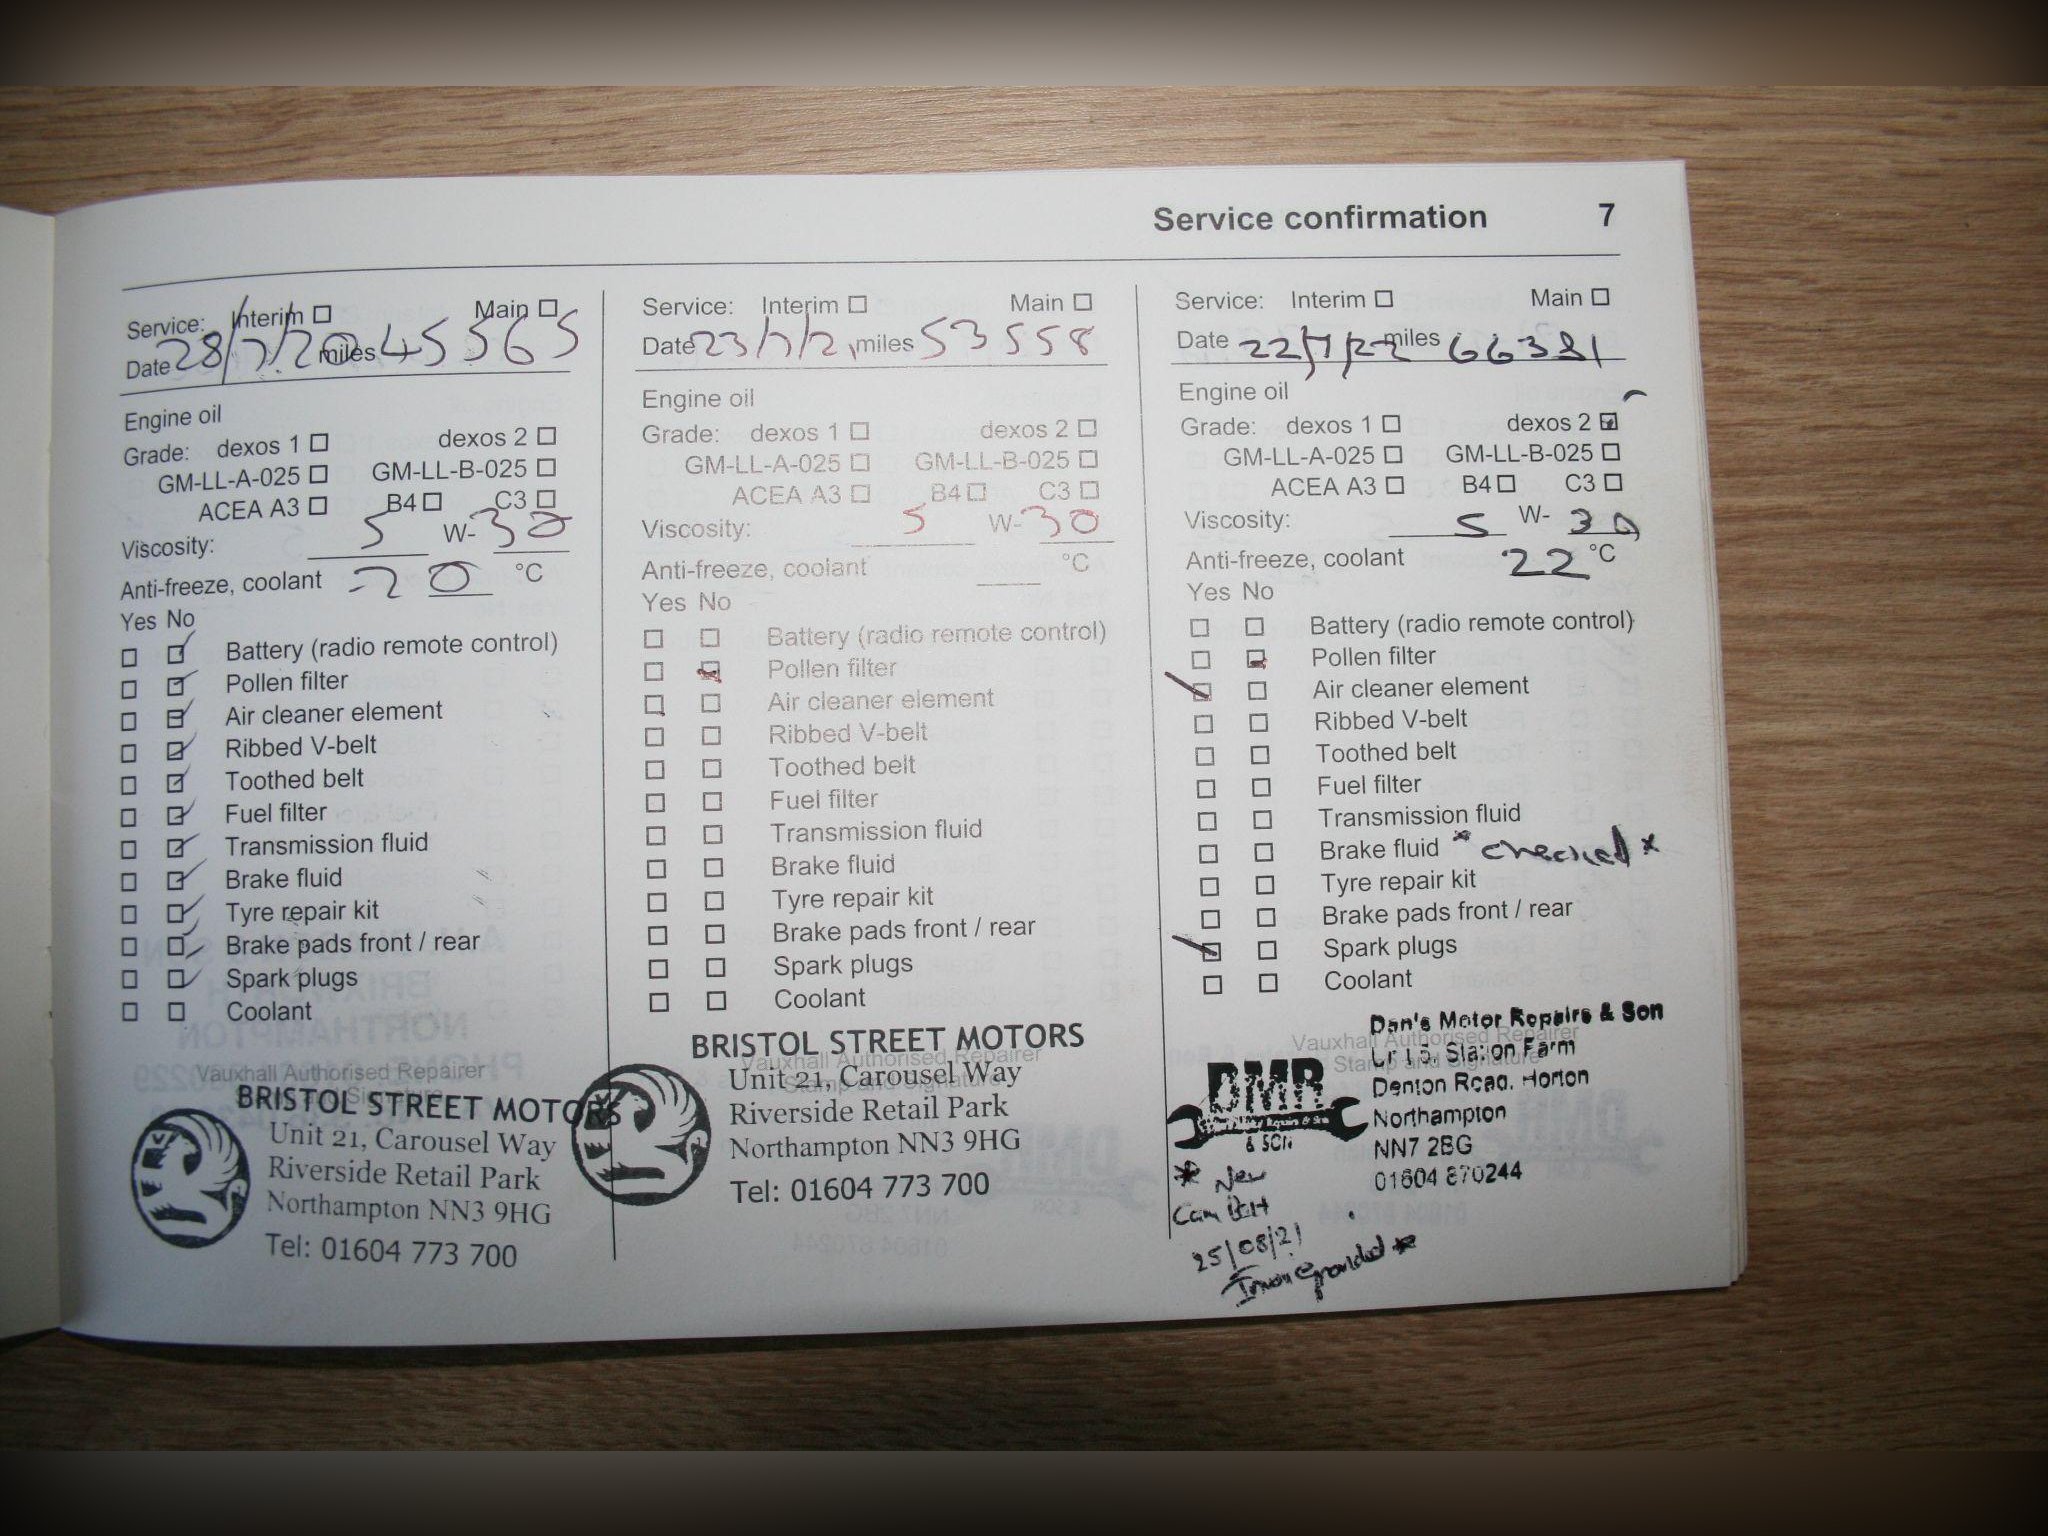 Service confirmation 7
Service: Interim Main
Date 28/7/20 miles 45565
Engine oil
Grade: dexos 1 dexos 2
GM-LL-A-025 GM-LL-B-025
ACEA A3 B4 C3
Viscosity: 5 W-30
Anti-freeze, coolant -20 °C
Yes No
Battery (radio remote control)
Pollen filter
Air cleaner element
Ribbed V-belt
Toothed belt
Fuel filter
Transmission fluid
Brake fluid
Tyre repair kit
Brake pads front / rear
Spark plugs
Coolant
Vauxhall Authorised Repairer
Stamp and Signature
BRISTOL STREET MOTORS
Unit 21, Carousel Way
Riverside Retail Park
Northampton NN3 9HG
Tel: 01604 773 700
Service: Interim Main
Date 23/7/21 miles 53558
Engine oil
Grade: dexos 1 dexos 2
GM-LL-A-025 GM-LL-B-025
ACEA A3 B4 C3
Viscosity: 5 W-30
Anti-freeze, coolant °C
Yes No
Battery (radio remote control)
Pollen filter
Air cleaner element
Ribbed V-belt
Toothed belt
Fuel filter
Transmission fluid
Brake fluid
Tyre repair kit
Brake pads front / rear
Spark plugs
Coolant
BRISTOL STREET MOTORS
Vauxhall Authorised Repairer
Stamp and Signature
Unit 21, Carousel Way
Riverside Retail Park
Northampton NN3 9HG
Tel: 01604 773 700
Service: Interim Main
Date 22/7/22 miles 66381
Engine oil
Grade: dexos 1 dexos 2
GM-LL-A-025 GM-LL-B-025
ACEA A3 B4 C3
Viscosity: 5 W-30
Anti-freeze, coolant 22 °C
Yes No
Battery (radio remote control)
Pollen filter
Air cleaner element
Ribbed V-belt
Toothed belt
Fuel filter
Transmission fluid
Brake fluid * checked *
Tyre repair kit
Brake pads front / rear
Spark plugs
Coolant
Dan's Motor Repairs & Son
Vauxhall Authorised Repairer
Stamp and Signature
Station Farm
Denton Road, Horton
Northampton
NN7 2BG
01604 870244
DMR
& SON
* New
Cam Belt
25/08/21